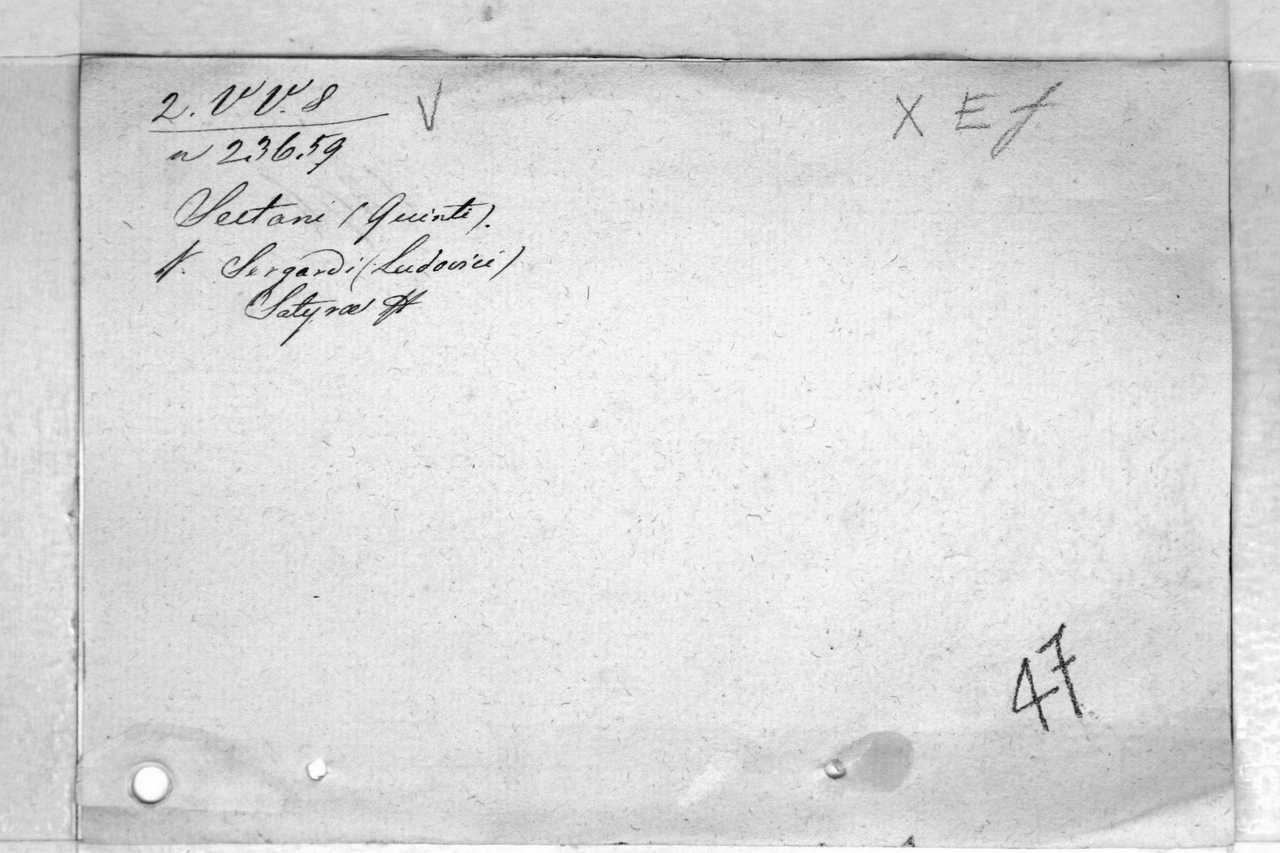 2. V V. 8
V
X E f
n 236.59
Sectani (Quinti).
V. Sergardi (Ludovici)
Satyræ
47